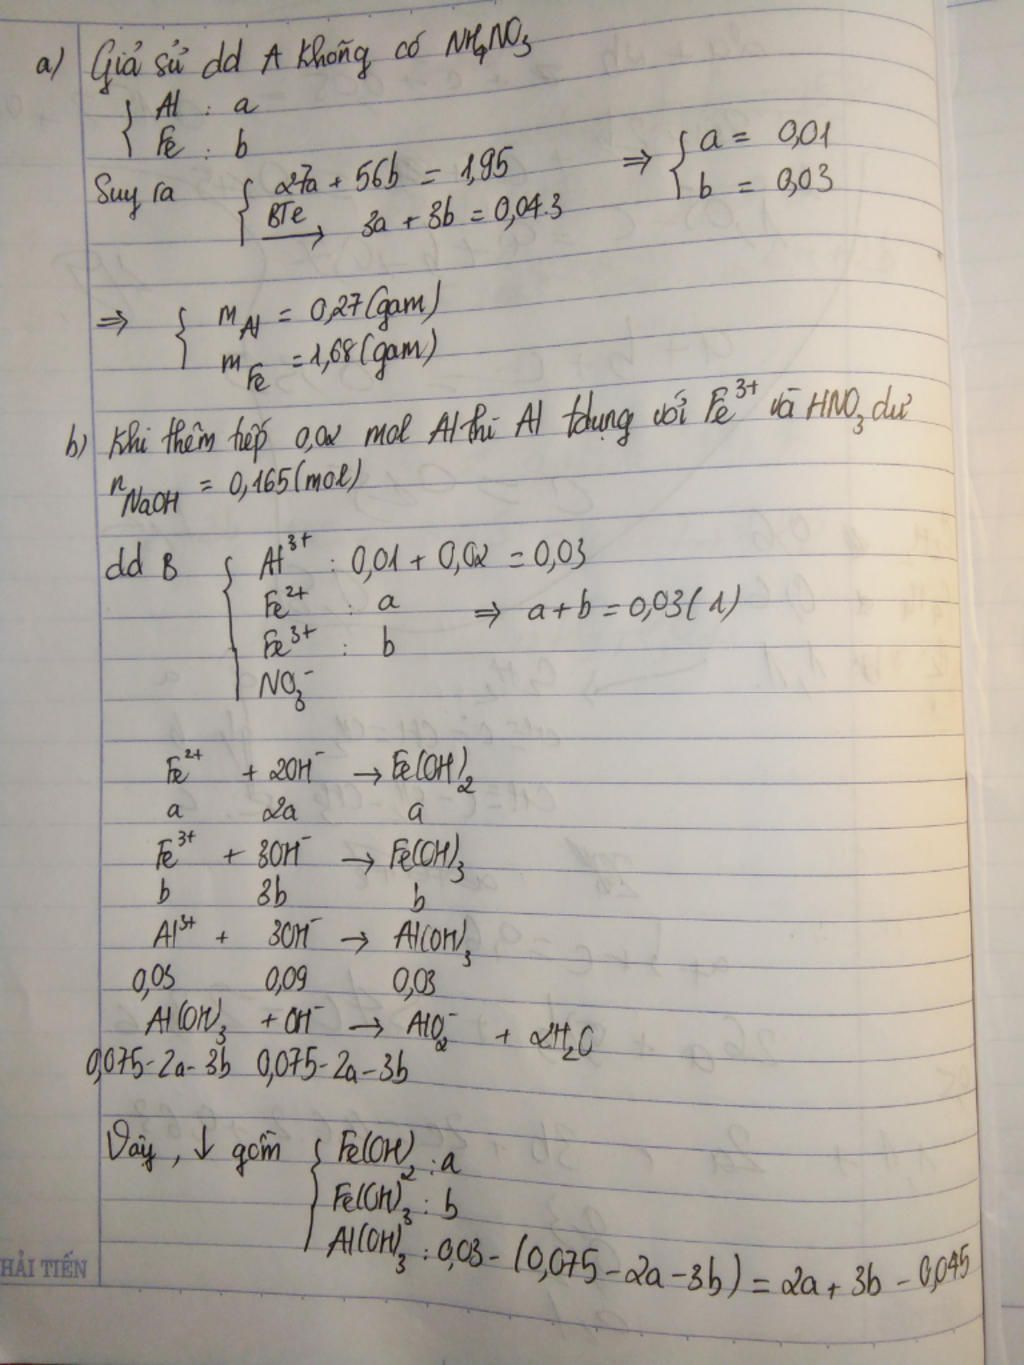 a) Giả sử dd A không có NH₄NO₃
{ Al : a
Fe : b
Suy ra { 27a + 56b = 1,95 ⇒ { a = 0,01
BTe → 3a + 3b = 0,04.3 b = 0,03
⇒ { m_Al = 0,27 (gam)
m_Fe = 1,68 (gam)
b) Khi thêm tiếp 0,02 mol Al thì Al tdụng với Fe³⁺ và HNO₃ dư
n_NaOH = 0,165 (mol)
dd B { Al³⁺ : 0,01 + 0,02 = 0,03
Fe²⁺ : a ⇒ a + b = 0,03 (1)
Fe³⁺ : b
NO₃⁻
Fe²⁺ + 2OH⁻ → Fe(OH)₂
a 2a a
Fe³⁺ + 3OH⁻ → Fe(OH)₃
b 3b b
Al³⁺ + 3OH⁻ → Al(OH)₃
0,03 0,09 0,03
Al(OH)₃ + OH⁻ → AlO₂⁻ + 2H₂O
0,075-2a-3b 0,075-2a-3b
Vậy, ↓ gồm { Fe(OH)₂ : a
Fe(OH)₃ : b
Al(OH)₃ : 0,03 - (0,075 - 2a - 3b) = 2a + 3b - 0,045
HẢI TIẾN